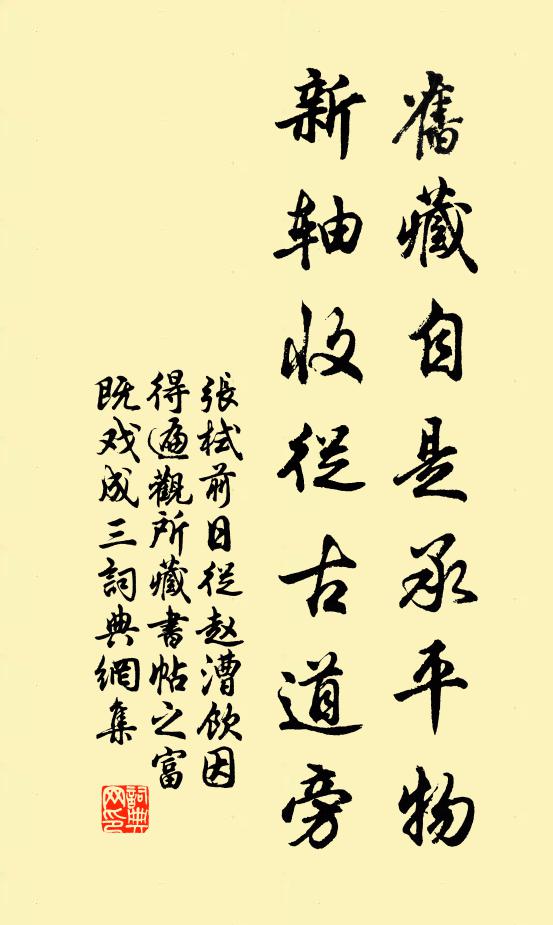 舊藏自是承平物
新軸收從古道旁
張栻前日從赵漕飲因
得遍觀所藏書帖之富
既戏成三詞典網集
詞典网印